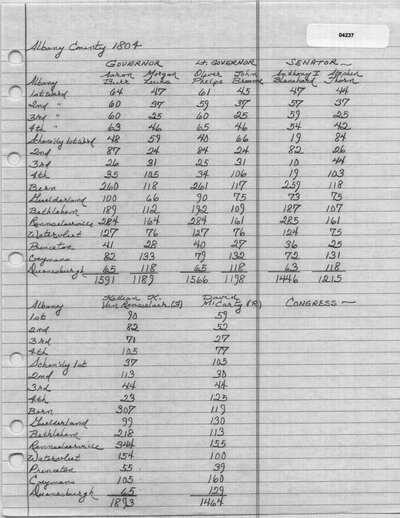 04237
Albany County 1804
GOVERNOR LT. GOVERNOR SENATOR
Aaron Morgan Oliver John Anthony I Stephen
Albany Burr Lewis Phelps Broome Blanchard Thorn
1st Ward 64 47 61 45 47 44
2nd " 60 37 59 37 57 37
3rd " 60 25 60 25 59 25
4th " 63 46 65 46 54 42
Schen'dy 1st Wrd 48 59 40 66 19 84
2nd 87 24 84 24 82 26
3rd 26 31 25 31 10 44
4th 35 105 34 106 19 103
Bern 260 118 261 117 239 118
Guelderland 100 66 90 75 73 75
Bethlehem 189 112 192 109 187 107
Rensselaerville 284 164 284 161 285 161
Watervliet 127 76 127 76 124 75
Princeton 41 28 40 27 36 25
Coeymans 82 133 79 132 72 131
Duanesburgh 65 118 65 118 63 118
1591 1189 1566 1198 1446 1215
Killian K. David
Albany Van Rensselaer (F) McCarty (R) CONGRESS ~
1st 90 59
2nd 82 52
3rd 71 27
4th 105 77
Schen'dy 1st 37 105
2nd 113 30
3rd 44 44
4th 23 125
Bern 307 119
Guelderland 99 130
Bethlehem 218 113
Rensselaerville 344 155
Watervliet 154 100
Princeton 55 39
Coeymans 105 160
Duanesburgh 65 129
1893 1464